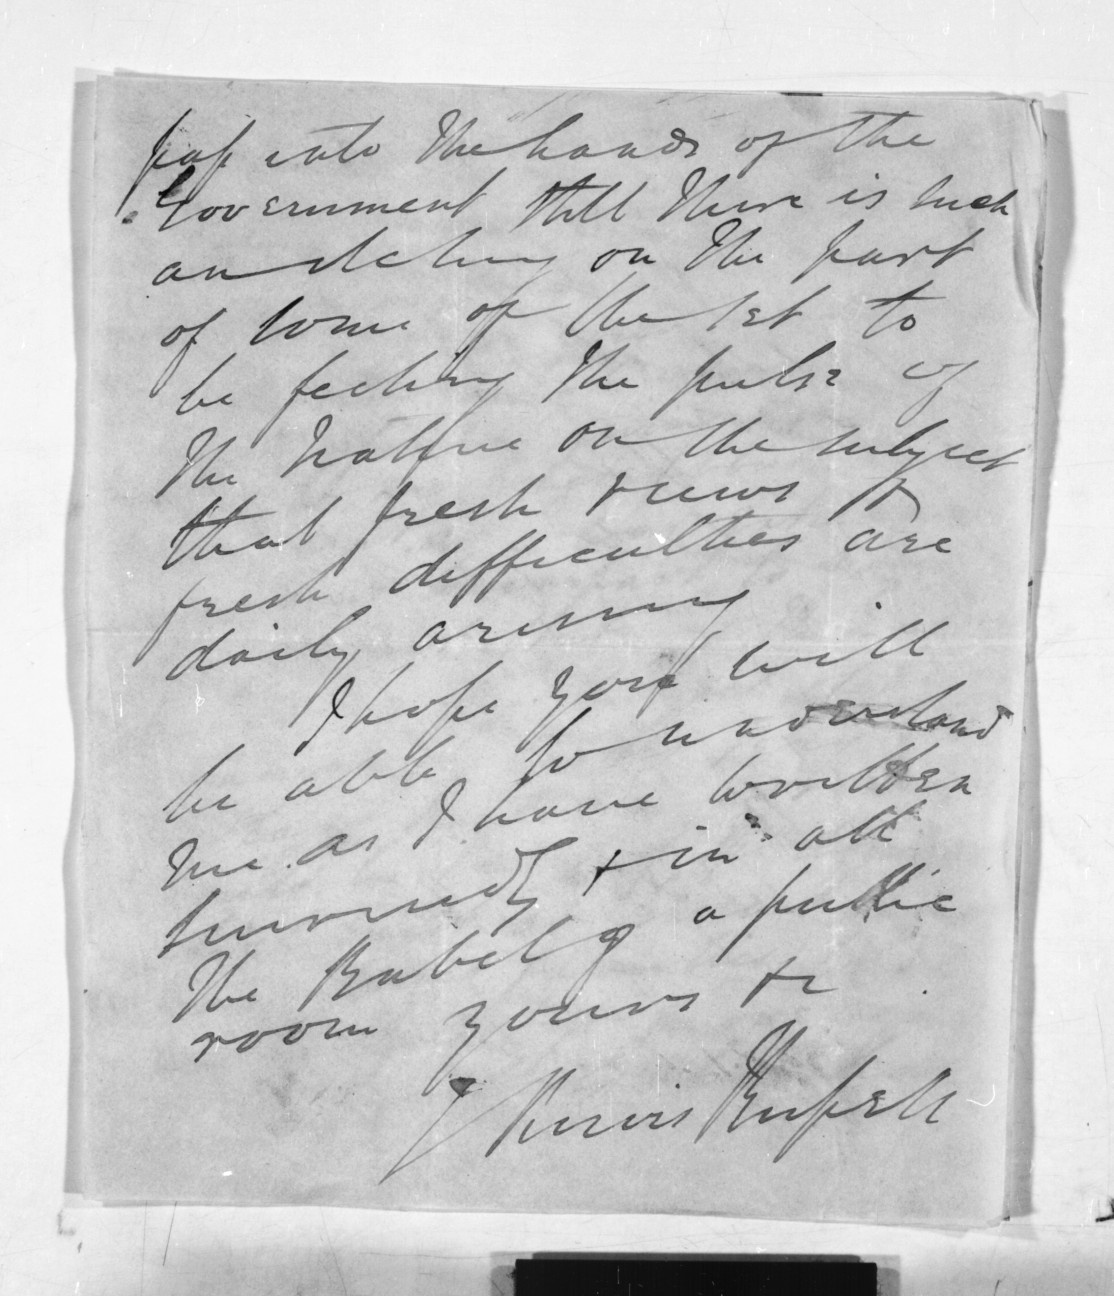 pass into the hands of the
Government still there is such
an itching on the part
of some of the set to
be feeling the pulse of
the Native on the subject
that fresh views &
fresh difficulties are
daily arising
I hope you will
be able to understand
me as I have written
hurriedly & in all
the Babel of a public
room yours &c
Purvis Russell